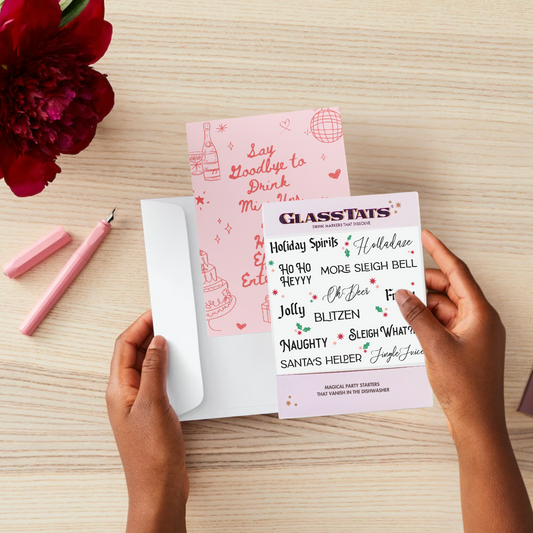 Say
Goodbye to
Drink
GLASSTATS
DRINK MARKERS THAT DISSOLVE
Holiday Spirits Holladaze
HO HO
HEYYY
MORE SLEIGH BELL
Oh Deer
Jolly
BLITZEN
NAUGHTY
SLEIGH WHAT?!
SANTA'S HELPER
Jingle Juice
MAGICAL PARTY STARTERS
THAT VANISH IN THE DISHWASHER